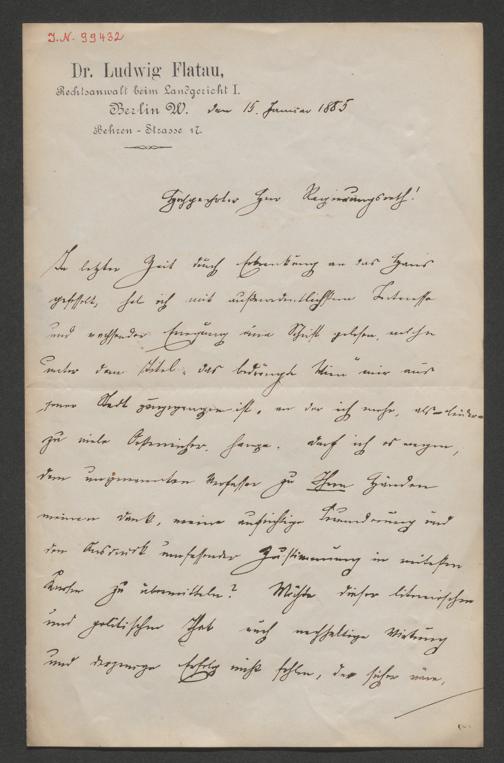 I.N. 99432
Dr. Ludwig Flatau,
Rechtsanwalt beim Landgericht I.
Berlin W. den 15. Januar 1885
Behren-Strasse 17.
Hochgeehrter Herr Regierungsrath!
In letzter Zeit durch Erkrankung an das Haus
gefesselt, hab ich mit außerordentlichstem Interesse
und wachsender Erregung eine Schrift gelesen, welche
unter dem Titel „das bedrängte Wien“ mir aus
jener Stadt zugegangen ist, an der ich mehr, als – leider –
zu viele Oesterreicher, hänge. Darf ich es wagen,
dem ungenannten Verfasser zu Ihren Händen
meinen Dank, meine aufrichtige Bewunderung und
den Ausdruck umfassender Zustimmung in weitesten
zu übermitteln? Möchte dieser literarischen
und politischen That auch nachhaltige Wirkung
und derjenige Erfolg nicht fehlen, der sicher wäre,